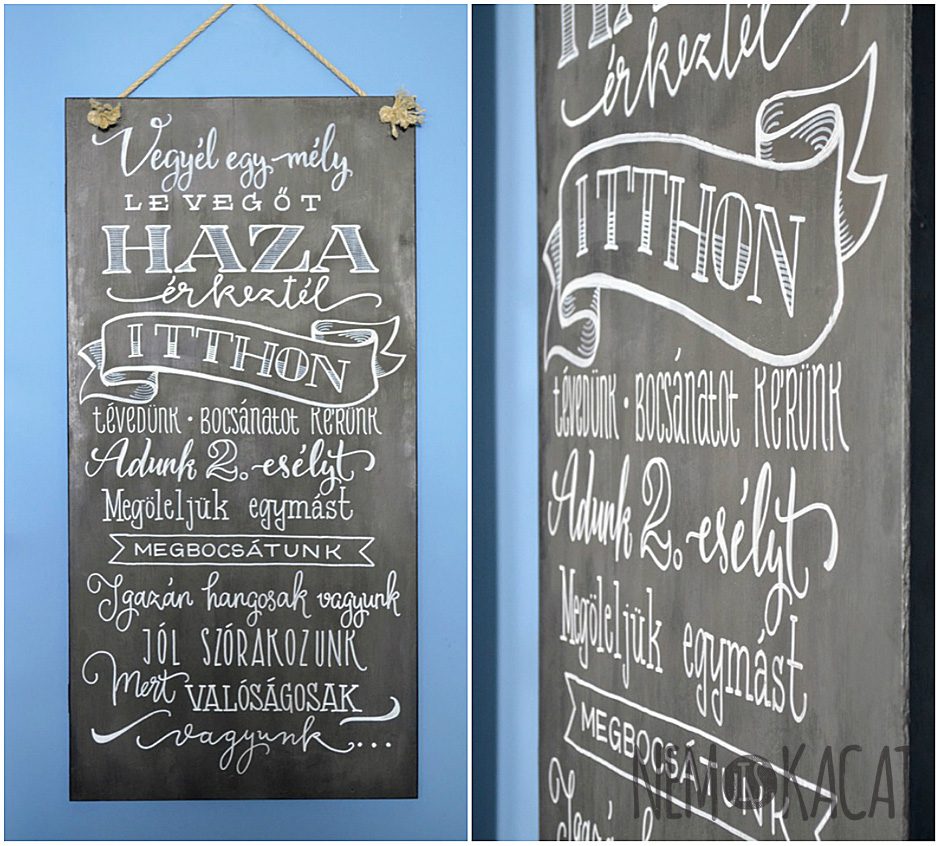 Vegyél egy mély
LEVEGŐT
HAZA
érkeztél
ITTHON
tévedünk • Bocsánatot kérünk
Adunk 2. esélyt
Megöleljük egymást
MEGBOCSÁTUNK
Igazán hangosak vagyunk
JÓL SZÓRAKOZUNK
Mert VALÓSÁGOSAK
vagyunk...
HAZA
érkeztél
ITTHON
tévedünk • Bocsánatot kérünk
Adunk 2. esélyt
Megöleljük egymást
MEGBOCSÁTUNK
NEM KACAT